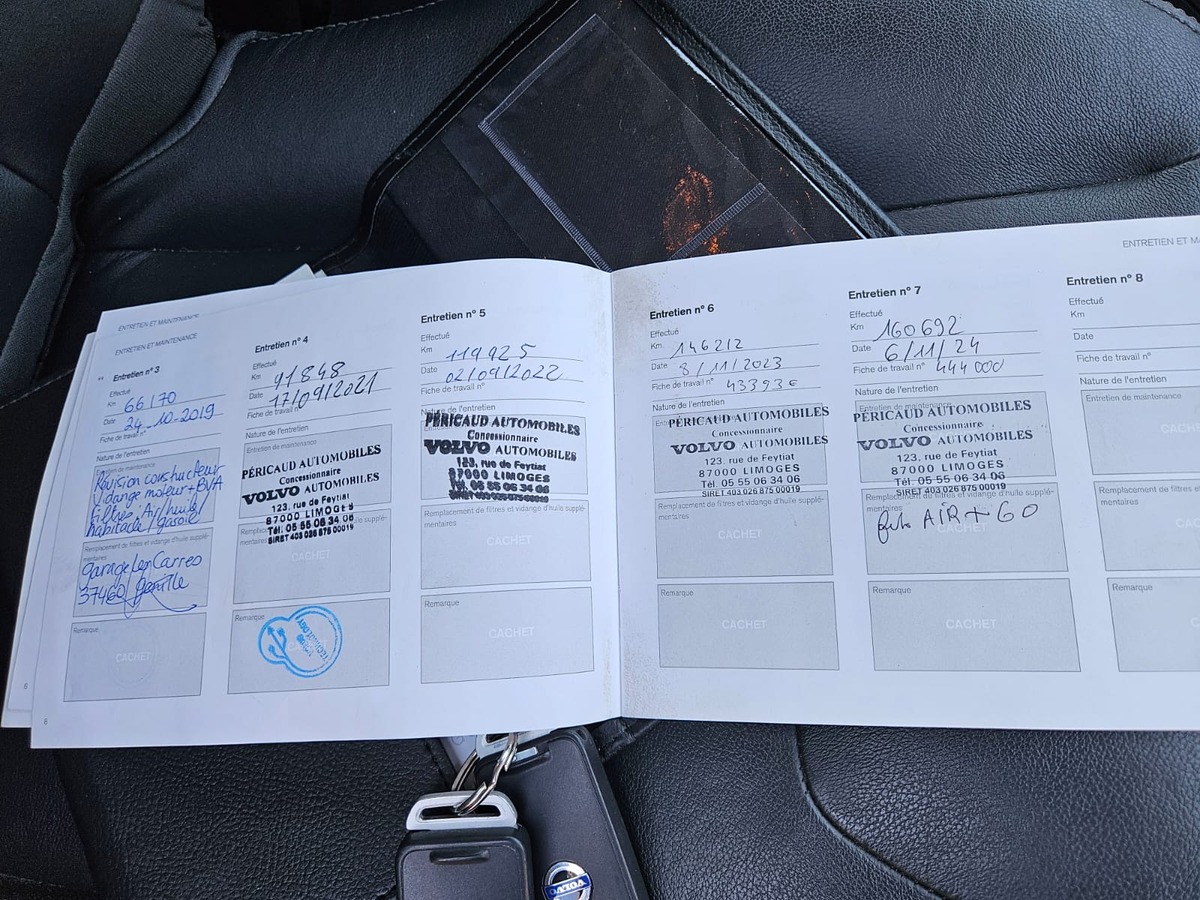 ENTRETIEN ET MAINTENANCE
ENTRETIEN ET MAINTENANCE
Entretien n° 3
Effectué
Km 66170
Date 24.10.2019
Fiche de travail n°
Nature de l'entretien
Entretien de maintenance
Révision constructeur
Vidange moteur + BVA
Filtres Air/huile/
habitacle/gasoil
Remplacement de filtres et vidange d'huile supplé-
mentaires
garage Les Carres
37460
Remarque
CACHET
6
8
Entretien n° 4
Effectué
Km 91848
Date 17/09/2021
Fiche de travail n°
Nature de l'entretien
Entretien de maintenance
PÉRICAUD AUTOMOBILES
Concessionnaire
VOLVO AUTOMOBILES
123, rue de Feytiat
87000 LIMOGES
Tél. 05 55 06 34 06
SIRET 403 026 875 00019
CACHET
Remarque
TECHNOLOGY
Entretien n° 5
Effectué
Km 119925
Date 02/09/2022
Fiche de travail n°
Nature de l'entretien
PÉRICAUD AUTOMOBILES
Concessionnaire
VOLVO AUTOMOBILES
123, rue de Feytiat
87000 LIMOGES
Tél. 05 55 06 34 06
SIRET 403 026 875 00019
Remplacement de filtres et vidange d'huile supplé-
mentaires
CACHET
Remarque
CACHET
Entretien n° 6
Effectué
Km 146212
Date 8/11/2023
Fiche de travail n° 43393
Nature de l'entretien
PÉRICAUD AUTOMOBILES
Concessionnaire
VOLVO AUTOMOBILES
123, rue de Feytiat
87000 LIMOGES
Tél. 05 55 06 34 06
SIRET 403 026 875 00019
Remplacement de filtres et vidange d'huile supplé-
mentaires
CACHET
Remarque
CACHET
Entretien n° 7
Effectué
Km 160692
Date 6/11/24
Fiche de travail n° 444000
Nature de l'entretien
Entretien de maintenance
PÉRICAUD AUTOMOBILES
Concessionnaire
VOLVO AUTOMOBILES
123, rue de Feytiat
87000 LIMOGES
Tél. 05 55 06 34 06
SIRET 403 026 875 00019
Remplacement de filtres et vidange d'huile supplé-
mentaires
AIR + GO
CACHET
Remarque
CACHET
ENTRETIEN ET MA
Entretien n° 8
Effectué
Km
Date
Fiche de travail n°
Nature de l'entretien
Entretien de maintenance
CACH
Remplacement de filtres
mentaires
CACH
Remarque
CACH
VOLVO